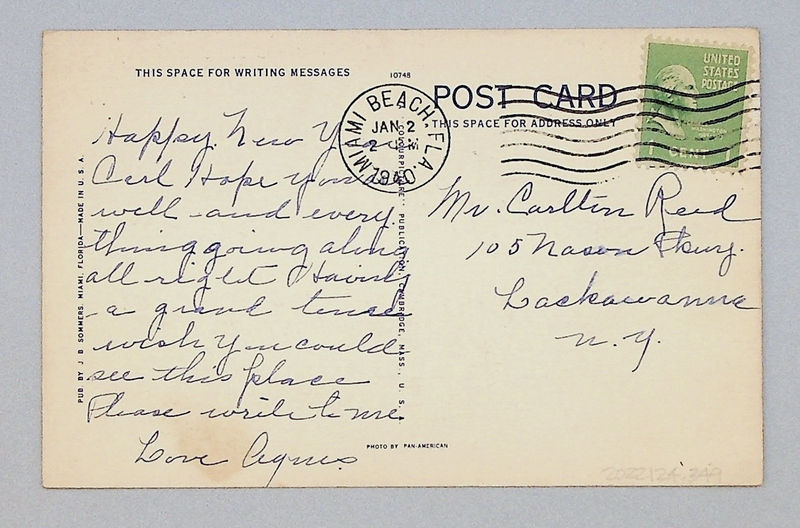 THIS SPACE FOR WRITING MESSAGES
10748
POST CARD
THIS SPACE FOR ADDRESS ONLY
UNITED
STATES
POSTAGE
WASHINGTON
1 CENT
MIAMI BEACH, FLA.
JAN 2
2 PM
1940
Happy New Year
Carl Hope you're
well and every
thing going along
all right Having
a grand time
wish you could
see this place
Please write to me.
Love Agnes
Mr. Carlton Reed
105 Nason
Lackawanna
N.Y.
PUB. BY J. B. SOMMERS, MIAMI, FLORIDA—MADE IN U. S. A.
"COLOURPICTURE" PUBLICATION, CAMBRIDGE, MASS., U. S. A.
PHOTO BY PAN-AMERICAN
2022.124.349